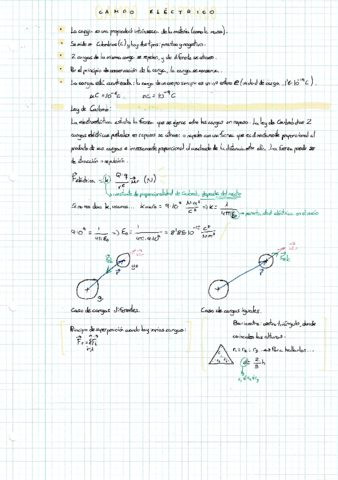 CAMPO ELÉCTRICO
• La carga es una propiedad intrínseca de la materia (como la masa).
• Se mide en Culombios (C) y hay dos tipos: positiva y negativa.
• 2 cargas de la misma carga se repelen, y de diferente se atraen.
• Por el principio de conservación de la carga, la carga se conserva.
• La carga está cuantizada: la carga de un cuerpo siempre es un nº entero
μC = 10⁻⁶ C    nC = 10⁻⁹ C
Ley de Coulomb:
La electrostática estudia la fuerza que se ejerce entre las cargas en reposo. La ley de Coulomb dice 2
cargas eléctricas puntuales en reposo se atraen o repelen con una fuerza que es directamente proporcional al
producto de sus cargas e inversamente proporcional al cuadrado de la distancia entre ellas. Una fuerza puede ser
de atracción o repulsión.
F eléctrica = k Q·q / r² (N)
constante de proporcionalidad de Coulomb, depende del medio
Si no nos dan k, usamos... k vacío = 9·10⁹ N·m²/C² → k = 1/4πε₀ → permitividad eléctrica en el vacío
9·10⁹ = 1/4πε₀ → ε₀ = 1/4π·9·10⁹ = 8'85·10⁻¹² C²/Nm²
Caso de cargas diferentes.
Caso de cargas iguales.
Principio de superposición cuando hay varias cargas:
Baricentro: centro triángulo, donde
coinciden las alturas.
r₁ = r₂ = r₃
d = 2/3 h